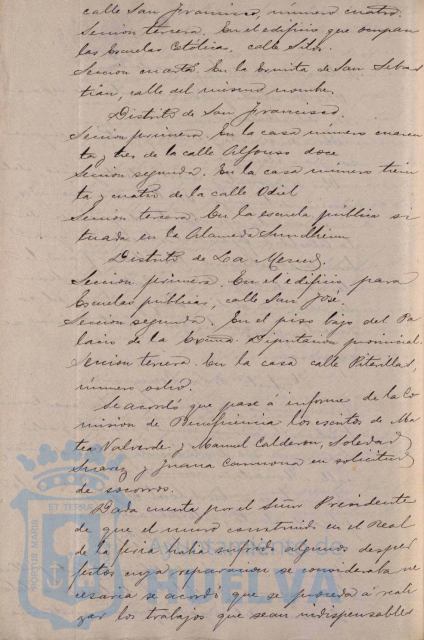 calle San Francisco, número cuatro.
Seccion tercera. En el edificio que ocupan
las Escuelas Católicas, calle Silos.
Seccion cuarta. En la Ermita de San Sebas
tian, calle del mismo nombre.
Distrito de San Francisco.
Seccion primera. En la casa número cuaren
ta y tres de la calle Alfonso doce
Seccion segunda. En la casa número trein
ta y cuatro de la calle Odiel
Seccion tercera. En la escuela pública si
tuada en la Alameda Sundheim
Distrito de La Merced.
Seccion primera. En el edificio para
Escuelas públicas, calle San José.
Seccion segunda. En el piso bajo del Pa
lacio de la Excma. Diputacion provincial.
Seccion tercera. En la casa calle Piterillas,
número ocho.
Se acordó que pase á informe de la Co
mision de Beneficencia los escritos de Ma
tea Valverde y Manuel Calderon, Soledad
Suarez y Juana Carmona en solicitud
de socorros.
Dada cuenta por el Señor Presidente
de que el muro construido en el Real
de la feria habia sufrido algunos desper
fectos cuya reparacion se consideraba ne
cesaria se acordó que se proceda á reali
zar los trabajos que sean indispensables
Ayuntamiento de
HUELVA
PORTUS MARIS
ET TERRAE